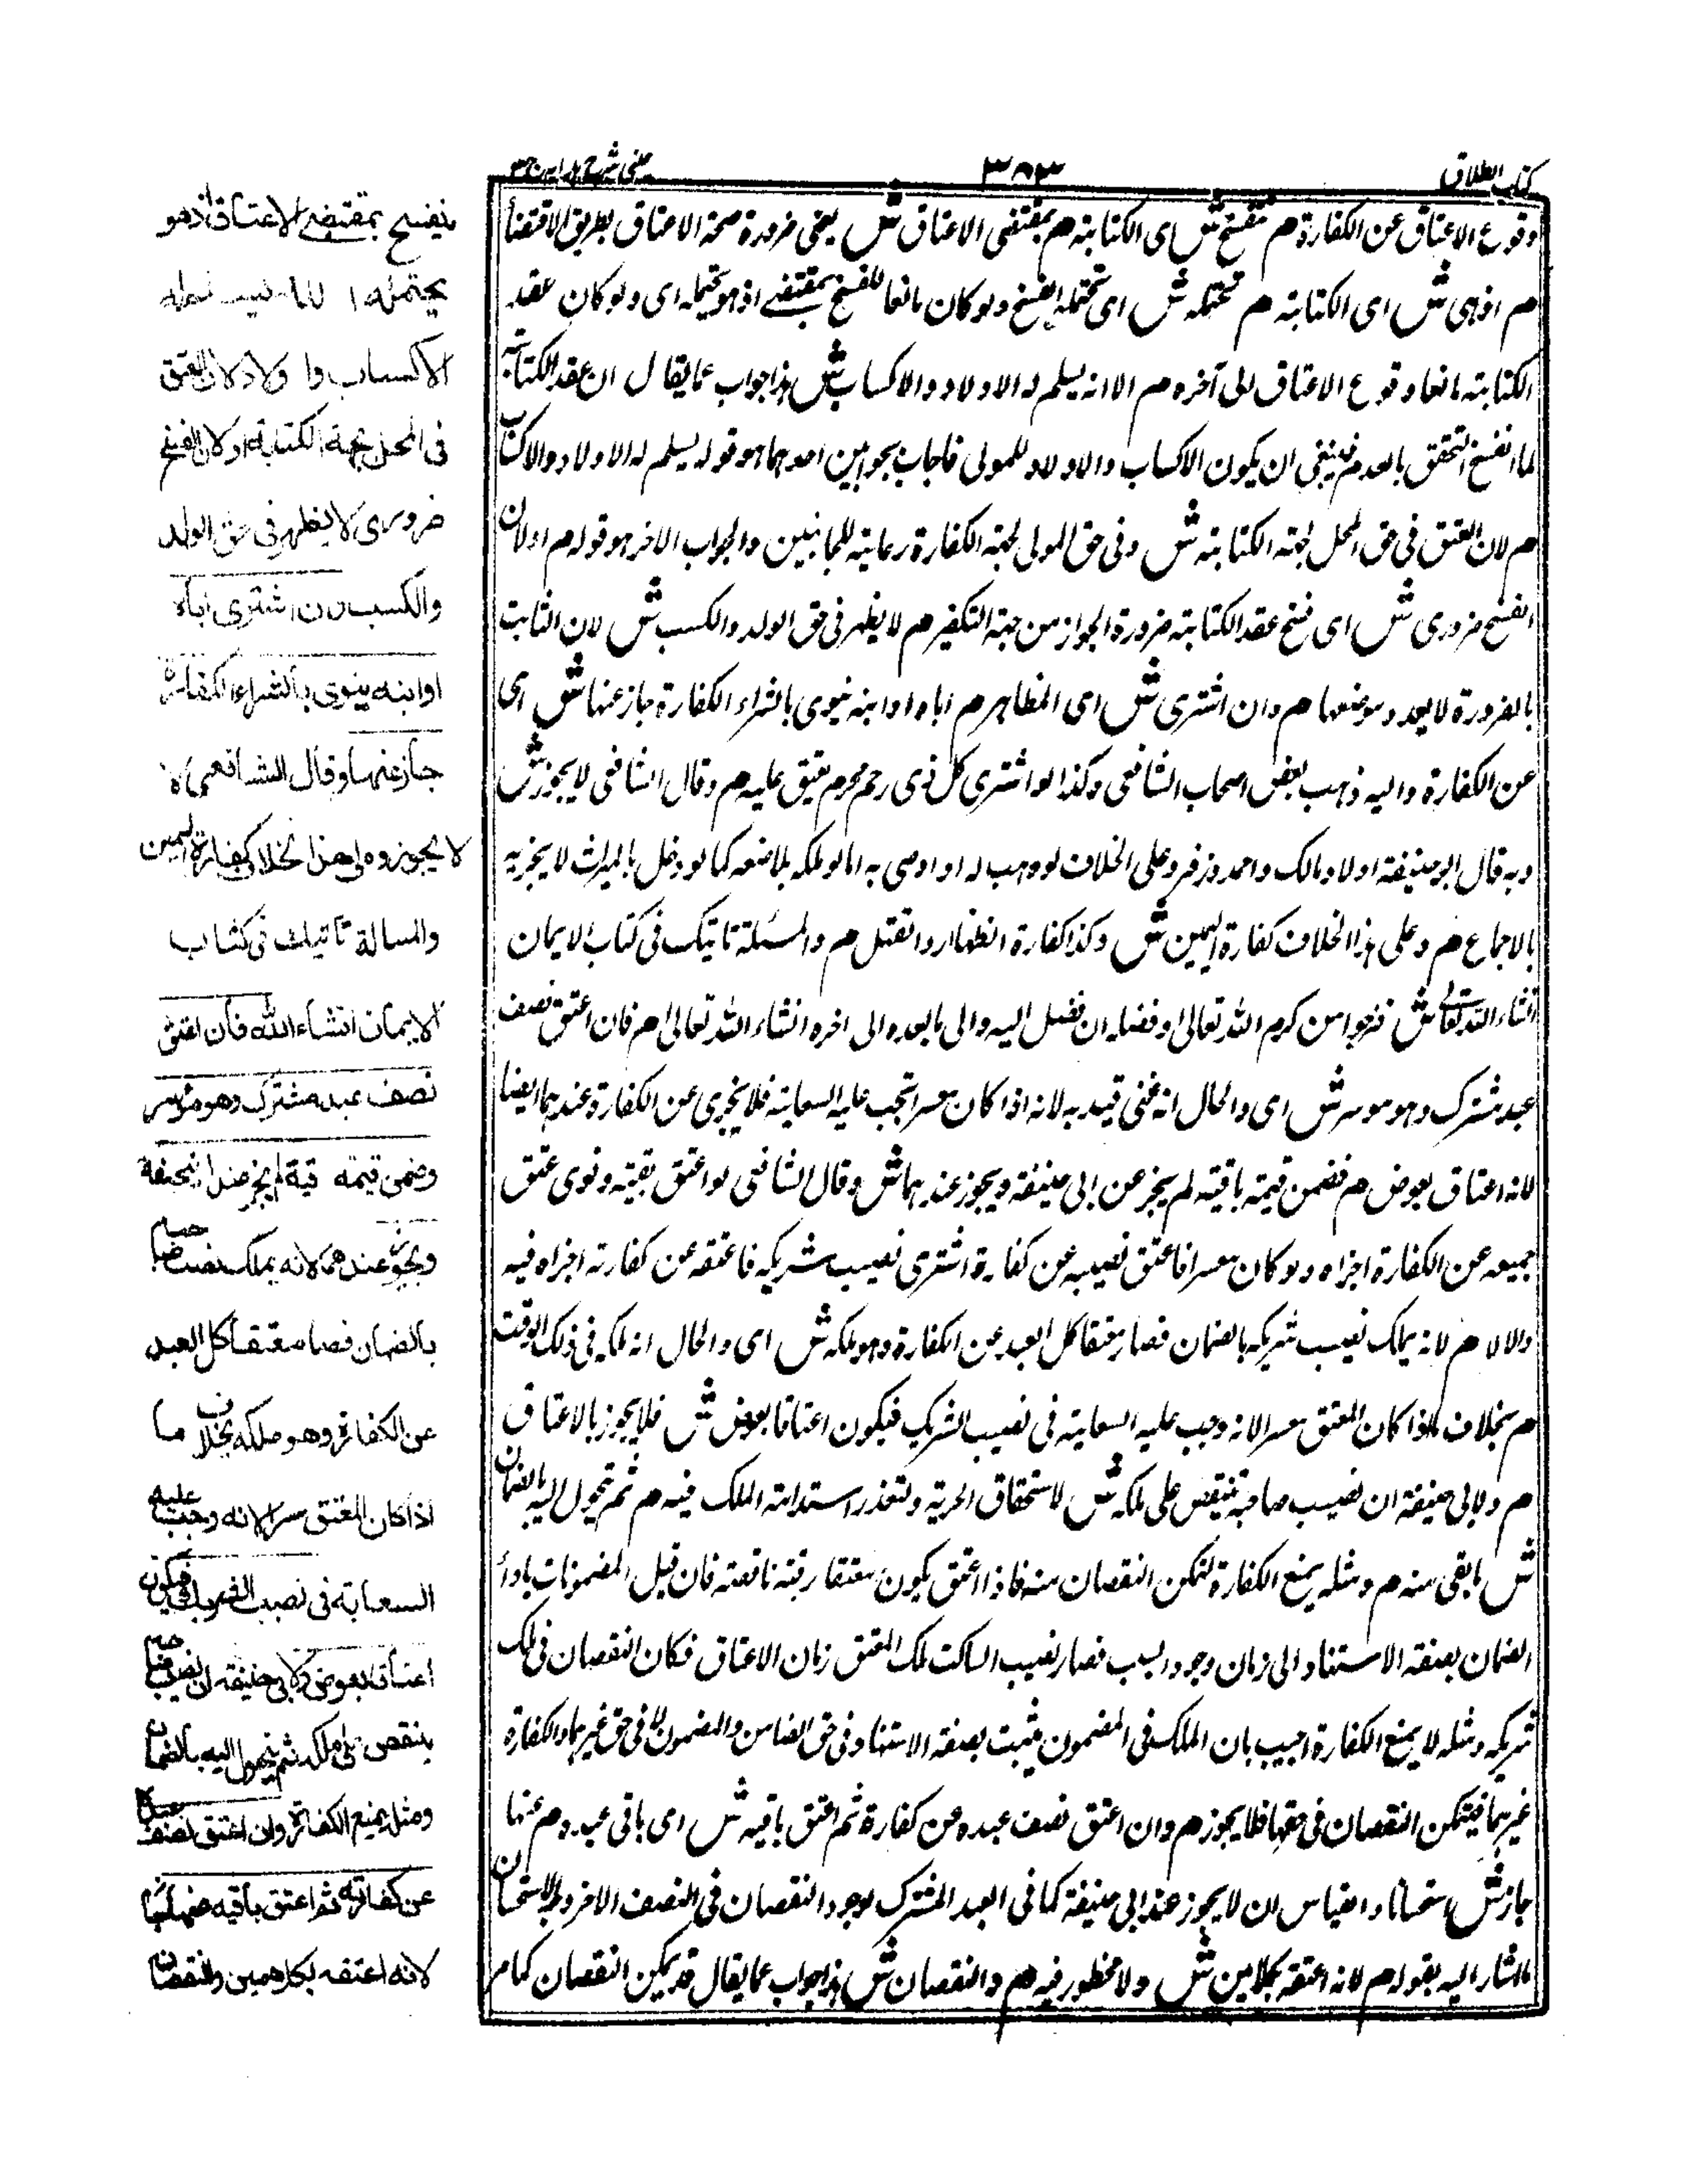 كتاب الطلاق
٣٨٣
وقوع الاعتاق عن الكفارة م تنفسخ ش اى الكتابة م بمقتضى الاعتاق ش يعنى ضرورة صحة الاعتاق بطريق الاقتضأ
م اذ هى ش اى الكتابته م تحتمله ش اى تحتمل الفسخ ولو كان مانعا للفسخ بمقتضى اذ هو يحتمله اى ولو كان عقد
الكتابته مانعا وقوع الاعتاق الى آخره م الا انه يسلم له الاولاد والاكساب ش هذا جواب عما يقال ان عقد الكتابة
لما انفسخ التحق بالعدم فينبغى ان يكون الاكساب والاولاد للمولى فاجاب بجوابين احدهما هو قوله يسلم له الاولاد والاكساب
م لان العتق فى حق المحل لجهة الكتابته ش وفى حق المولى لجهة الكفارة رعاية للجانبين والجواب الاخر هو قوله م او لان
الفسخ ضرورى ش اى فسخ عقد الكتابته ضرورة الجواز من جهة التكفير م لا يظهر فى حق الولد والكسب ش لان الثابت
بالضرورة لا يعدو موضعها م وان اشترى ش اى المظاهر م اباه او ابنه ينوى بالشراء الكفارة جاز عنها ش اى
عن الكفارة واليه ذهب بعض اصحاب الشافعى وكذا لو اشترى كل ذى رحم محرم يعتق عليه م وقال الشافعى لا يجوز ش
وبه قال ابو حنيفة اولا ومالك واحمد وزفر وعلى الخلاف لو وهب له او اوصى به اما لو ملكه بلا صنعه كما لو دخل بالميراث لا يجزيه
بالاجماع م وعلى هذا الخلاف كفارة اليمين ش وكذا كفارة الظهار والقتل م والمسئلة تاتيك فى كتاب الايمان
انشاء الله تعالى ش نرجوا من كرم الله تعالى وفضله ان نصل اليه والى ما بعده الى اخره انشاء الله تعالى م فان اعتق نصف
عبد مشترك وهو موسر ش اى والحال انه غنى قيد به لانه اذا كان معسرا تجب عليه السعاية فلا يجزى عن الكفارة عندهما ايضا
لانه اعتاق بعوض م فضمن قيمة باقيه لم يجز عن ابى حنيفة ويجوز عندهما ش وقال الشافعى لو اعتق بقيته ونوى عتق
جميعه عن الكفارة اجزاه ولو كان معسرا فاعتق نصيبه عن كفارة اشترى نصيب شريكه فاعتقه عن كفارته اجزاه فيه
والا لا م لانه يملك نصيب شريكه بالضمان فصار معتقا كل العبد عن الكفارة وهو ملكه ش اى والحال انه ملكه فى ذلك الوقت
م بخلاف ما اذا كان المعتق معسرا لانه وجب عليه السعاية فى نصيب الشريك فيكون اعتاقا بعوض ش فلا يجوز بالاعتاق
م ولابى حنيفة ان نصيب صاحبه ينتقص على ملكه ش لاستحقاق الحرية ولتعذر استدامة الملك فيه م ثم يتحول اليه بالضمان
ش ما بقى منه م ومثله يمنع الكفارة لتمكن النقصان منه فاذا اعتق يكون معتقا رقبة ناقصة فان قيل المضمونات بادأ
الضمان بصفة الاستناد الى زمان وجود السبب فصار نصيب الساكت ملك المعتق زمان الاعتاق فكان النقصان فى ملك
شريكه ومثله لا يمنع الكفارة اجيب بان الملك فى المضمون يثبت بصفة الاستناد فى حق الضامن والمضمون لا فى حق غيرهما والكفارة
غيرهما فيتمكن النقصان فى حقها فلا يجوز م وان اعتق نصف عبده عن كفارة ثم اعتق باقيه ش اى باقى عبده م عنها
جاز ش استحسانا والقياس ان لا يجوز عند ابى حنيفة كما فى العبد المشترك لوجود النقصان فى النصف الاخر وجه الاستحسان
ما اشار اليه بقوله م لانه اعتقه بكلامين ش ولا محظور فيه م والنقصان ش هذا جواب عما يقال قد يمكن النقصان كما مر
ينفسخ بمقتضى الاعتاق اذ هو
يحتمله
الاكساب والاولاد لان العتق
فى المحل بجهة الكتابة او لان الفسخ
ضرورى لا يظهر فى حق الولد
والكسب وان اشترى اباه
او ابنه ينوى بالشراء الكفارة
جاز عنها وقال الشافعى
لا يجوز وعلى هذا الخلاف كفارة اليمين
والمسالة تاتيك فى كتاب
الايمان انشاء الله فان اعتق
نصف عبد مشترك وهو مؤسر
وضمن قيمته
ويجوز عندهما لانه يملك نصيب صاحبه
بالضمان فصار معتقا كل العبد
عن الكفارة وهو ملكه بخلاف ما
اذا كان المعتق معسرا لانه وجب عليه
السعاية فى نصيب الشريك فيكون
اعتاقا بعوض ولابى حنيفة ان نصيب صاحبه
ينتقص على ملكه ثم يتحول اليه بالضمان
ومثله يمنع الكفارة وان اعتق نصف عبده
عن كفارته ثم اعتق باقيه عنها جاز
لانه اعتقه بكلامين والنقصان